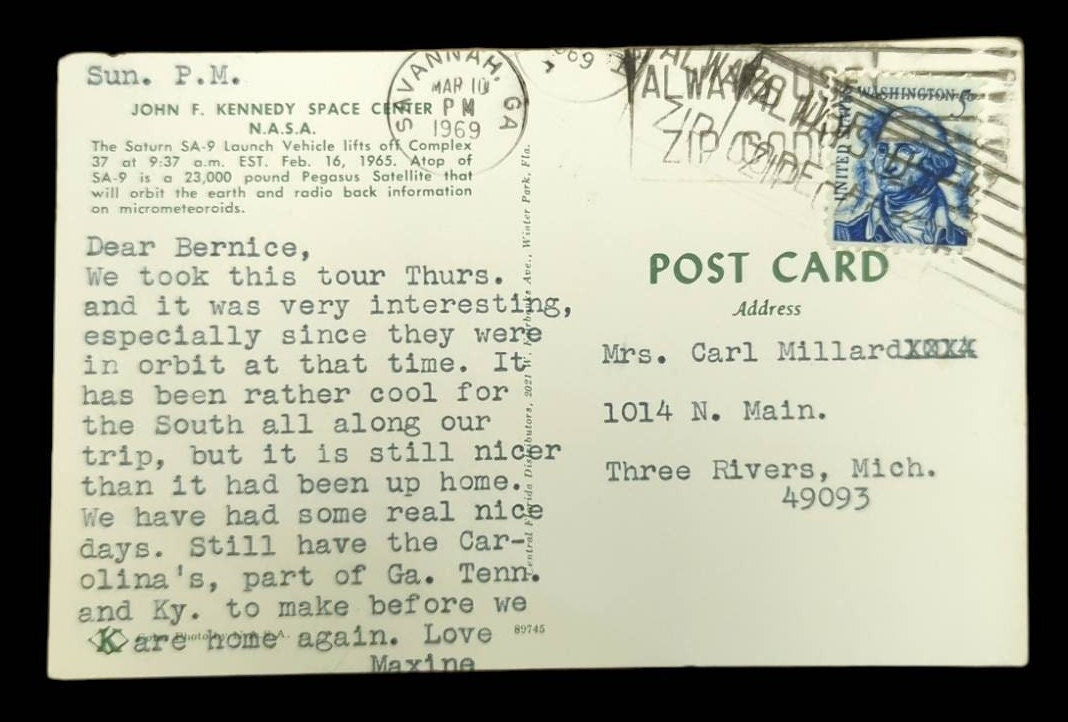 Sun. P.M.
JOHN F. KENNEDY SPACE CENTER
N.A.S.A.
The Saturn SA-9 Launch Vehicle lifts off Complex
37 at 9:37 a.m. EST. Feb. 16, 1965. Atop of
SA-9 is a 23,000 pound Pegasus Satellite that
will orbit the earth and radio back information
on micrometeoroids.
Dear Bernice,
We took this tour Thurs.
and it was very interesting,
especially since they were
in orbit at that time. It
has been rather cool for
the South all along our
trip, but it is still nicer
than it had been up home.
We have had some real nice
days. Still have the Car-
olina's, part of Ga. Tenn.
and Ky. to make before we
are home again. Love
Maxine
K
89745
Central Florida Distributors, 2021 W. Fairbanks Ave., Winter Park, Fla.
SAVANNAH, GA
MAR 10
PM
1969
69
ALWAYS USE
ZIP CODE
UNITED STATES
WASHINGTON
5
POST CARD
Address
Mrs. Carl Millard
1014 N. Main.
Three Rivers, Mich.
49093